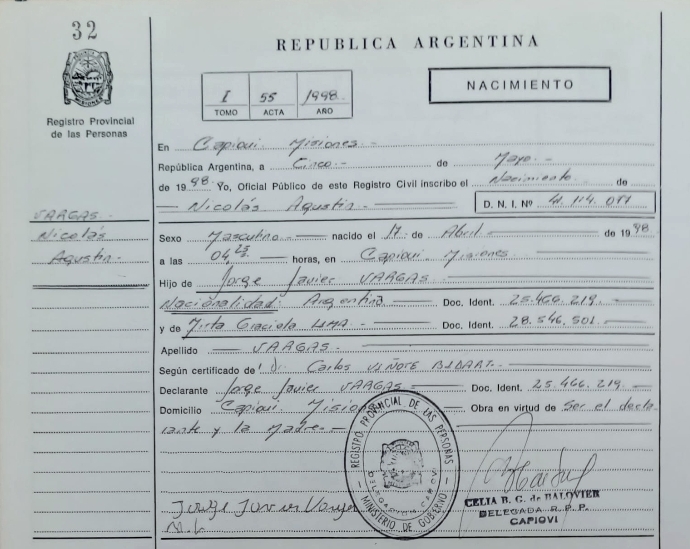 32
REPUBLICA ARGENTINA
Registro Provincial
de las Personas
I 55 1998
TOMO ACTA AÑO
NACIMIENTO
En Capiovi Misiones
República Argentina, a Cinco de Mayo
de 1998 Yo, Oficial Público de este Registro Civil inscribo el Nacimiento de
Nicolás Agustín D. N. I. Nº 41.114.011
VARGAS
Nicolás
Agustín
Sexo Masculino nacido el 17 de Abril de 1998
a las 04,25 horas, en Capiovi Misiones
Hijo de Jorge Javier VARGAS
Nacionalidad: Argentina Doc. Ident. 25.466.219
y de Mirta Graciela LIMA Doc. Ident. 28.546.501
Apellido VARGAS
Según certificado de Dr. Carlos VIÑOTE BIDART
Declarante Jorge Javier VARGAS Doc. Ident. 25.466.219
Domicilio Capiovi Misiones Obra en virtud de Ser el decla
rante y la Madre
REGISTRO PROVINCIAL DE LAS PERSONAS
DELEGACION CAPIOVI
MINISTERIO DE GOBIERNO
Jorge Javier Vargas
CELIA B. G. de BALOVIER
DELEGADA R. P. P.
CAPIOVI